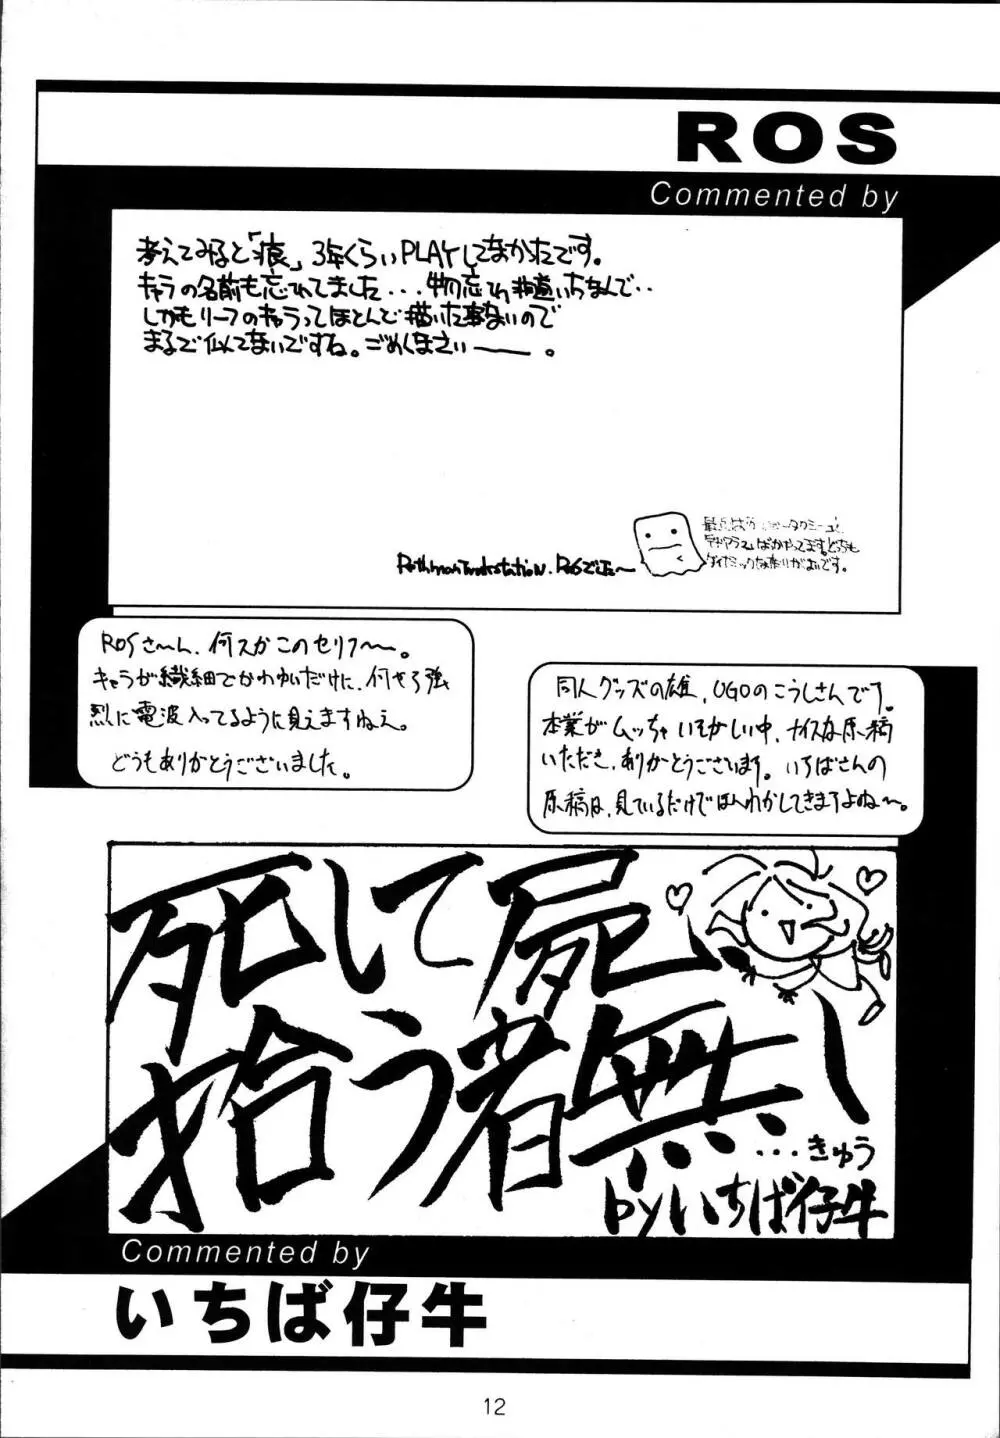 ROS
Commented by
考えてみると「痕」3年くらいPLAYしてなかたです。
キャラの名前も忘れてました...物忘れ激しいなんで..
しかもリーフのキャラってほとんど描いた事ないので
まるで似てないですね。ごめんなさいーーー。
ROSでした〜
ばかやってますどちらも
ダイナミックな所がよいです。
ROSさ〜ん、何スかこのセリフ〜〜。
キャラが繊細でかわゆいだけに、何せろ強
烈に電波入ってるように見えますねえ。
どうもありがとうございました。
同人グッズの雄、UGOのこうしさんです。
本業がムッチャいそがしい中、ナイスな原稿
いただき、ありがとうございます。いちばさんの
原稿は、見ているだけでほんわかしてきますよね〜。
死して屍
拾う者無し
...きゅう
byいちば仔牛
Commented by
いちば仔牛
12